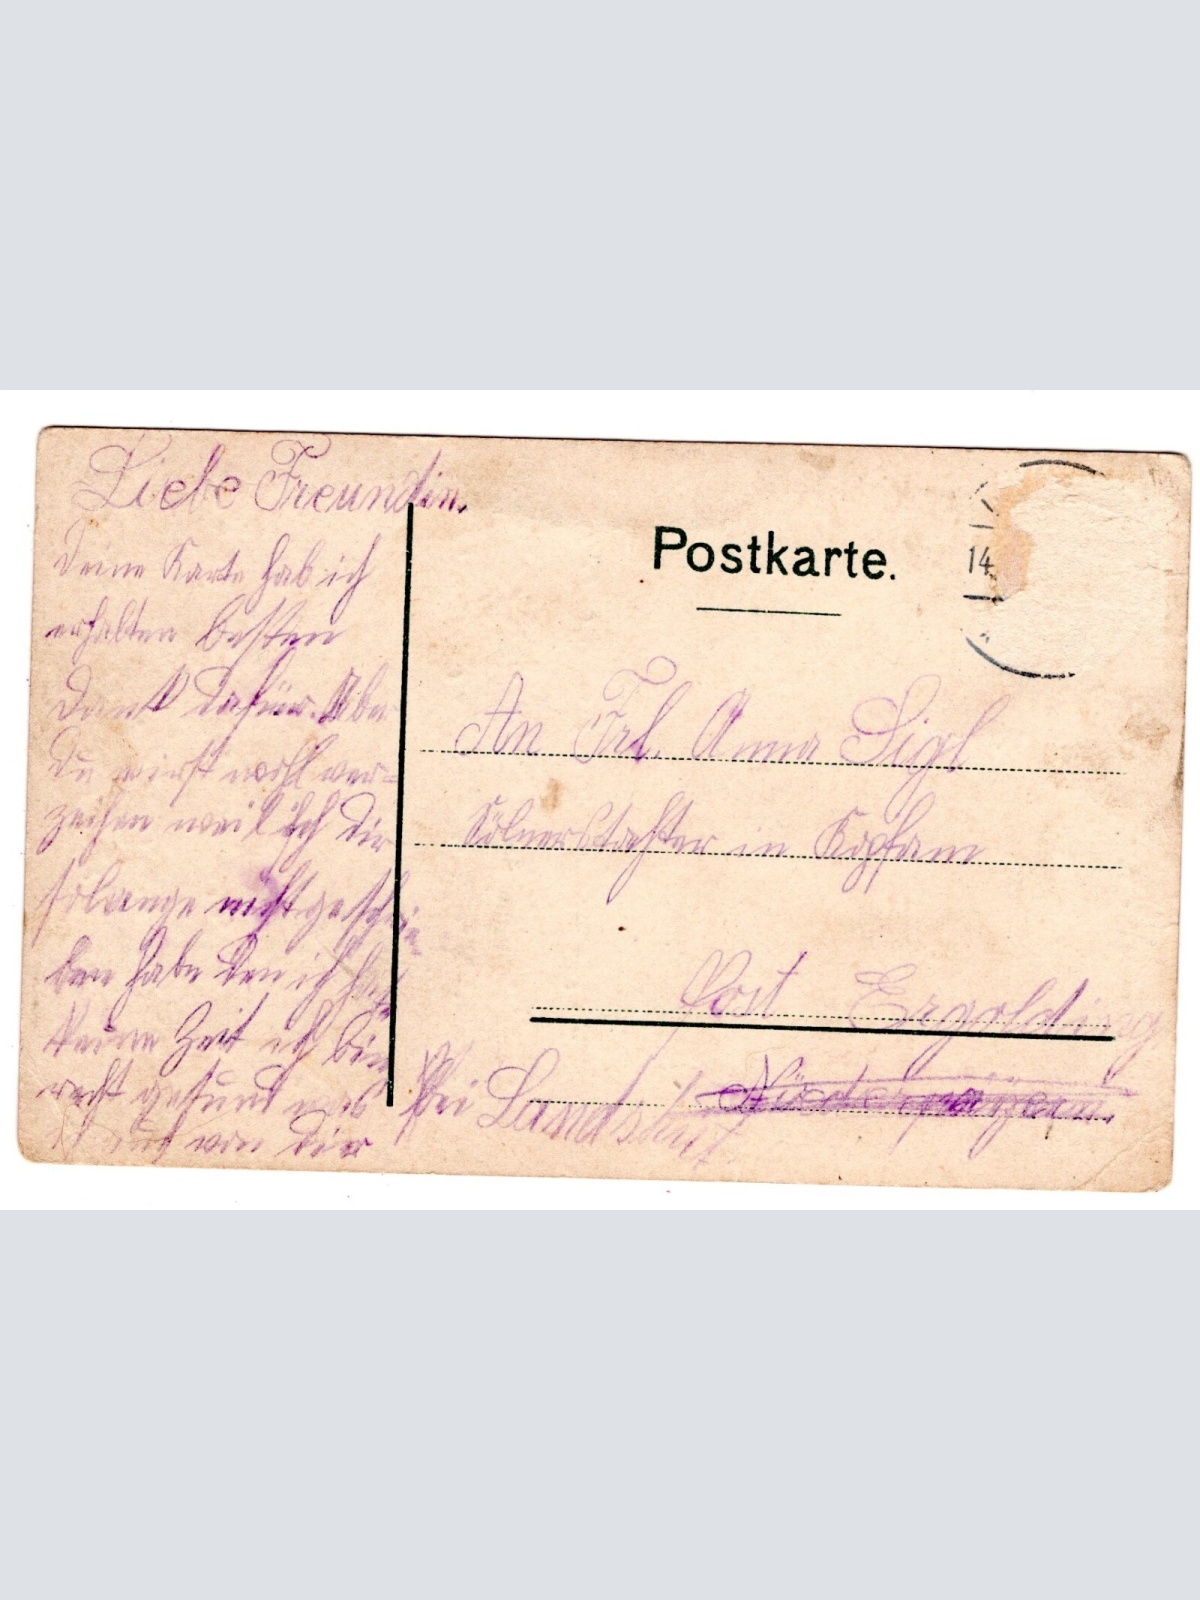 Liebe Freundin.
Deine Karte hab ich
erhalten besten
Dank dafür. Aber
Du wirst wohl ver-
zeihen weil ich Dir
solange nicht geschrie-
ben habe den ich habe
keine Zeit ich bin
recht gesund was
auch von Dir
Postkarte.
14
An Frl. Anna Sigl
in Kopfham
Post Ergolding
bei Landshut